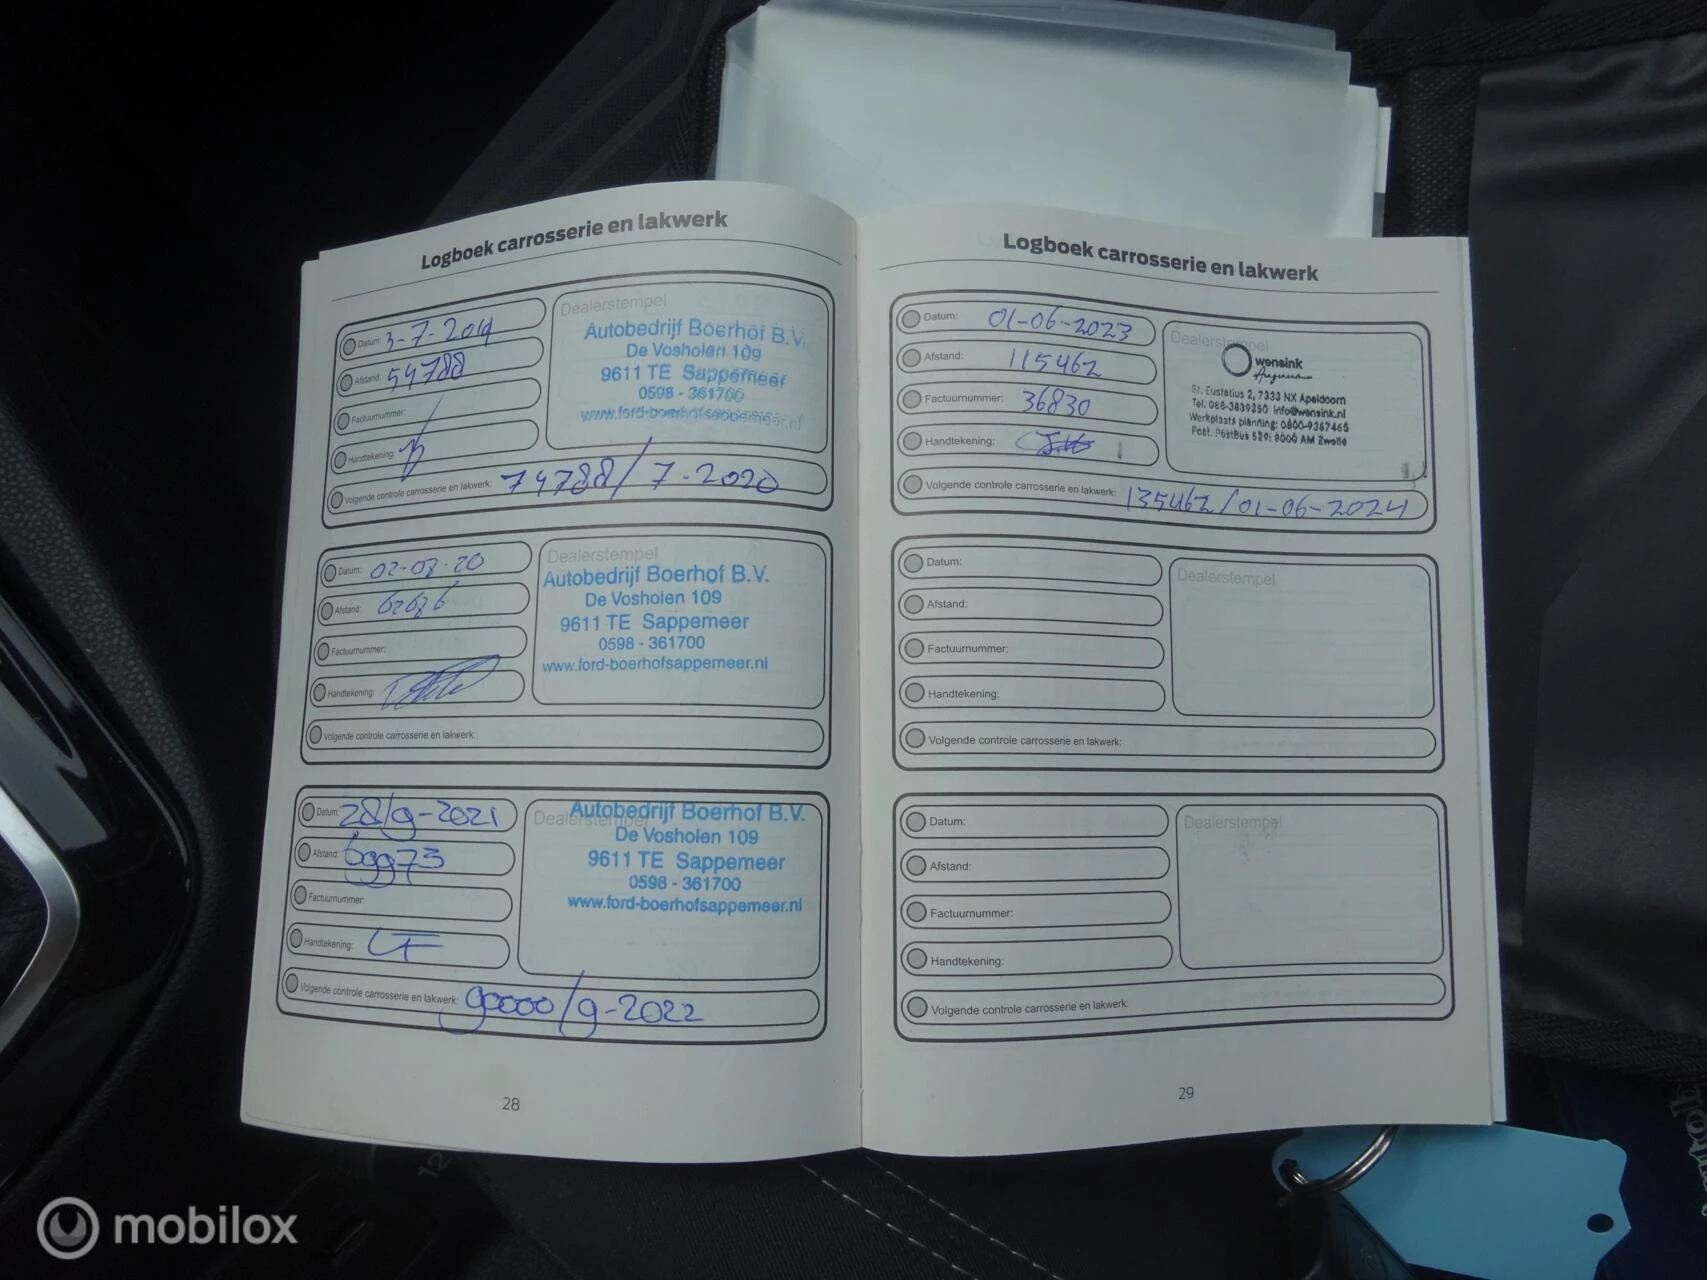 Logboek carrosserie en lakwerk
Datum: 3-7-2019
Afstand: 54788
Factuurnummer:
Handtekening:
Volgende controle carrosserie en lakwerk: 74788/7-2020
Dealerstempel
Autobedrijf Boerhof B.V.
De Vosholen 109
9611 TE Sappemeer
0598 - 361700
www.ford-boerhofsappemeer.nl
Datum: 02-08-20
Afstand: 62686
Factuurnummer:
Handtekening:
Volgende controle carrosserie en lakwerk:
Dealerstempel
Autobedrijf Boerhof B.V.
De Vosholen 109
9611 TE Sappemeer
0598 - 361700
www.ford-boerhofsappemeer.nl
Datum: 28/9-2021
Afstand: 69973
Factuurnummer:
Handtekening:
Volgende controle carrosserie en lakwerk: 90000/9-2022
Dealerstempel
Autobedrijf Boerhof B.V.
De Vosholen 109
9611 TE Sappemeer
0598 - 361700
www.ford-boerhofsappemeer.nl
28
Logboek carrosserie en lakwerk
Datum: 01-06-2023
Afstand: 115462
Factuurnummer: 36830
Handtekening:
Volgende controle carrosserie en lakwerk: 135462/01-06-2024
Dealerstempel
wensink
St. Eustatius 2, 7333 NX Apeldoorn
Tel. 088-3839250 info@wensink.nl
Werkplaats planning: 0800-9367465
Post. PostBus 529; 8000 AM Zwolle
Datum:
Afstand:
Factuurnummer:
Handtekening:
Volgende controle carrosserie en lakwerk:
Dealerstempel
Datum:
Afstand:
Factuurnummer:
Handtekening:
Volgende controle carrosserie en lakwerk:
Dealerstempel
29
12
mobilox